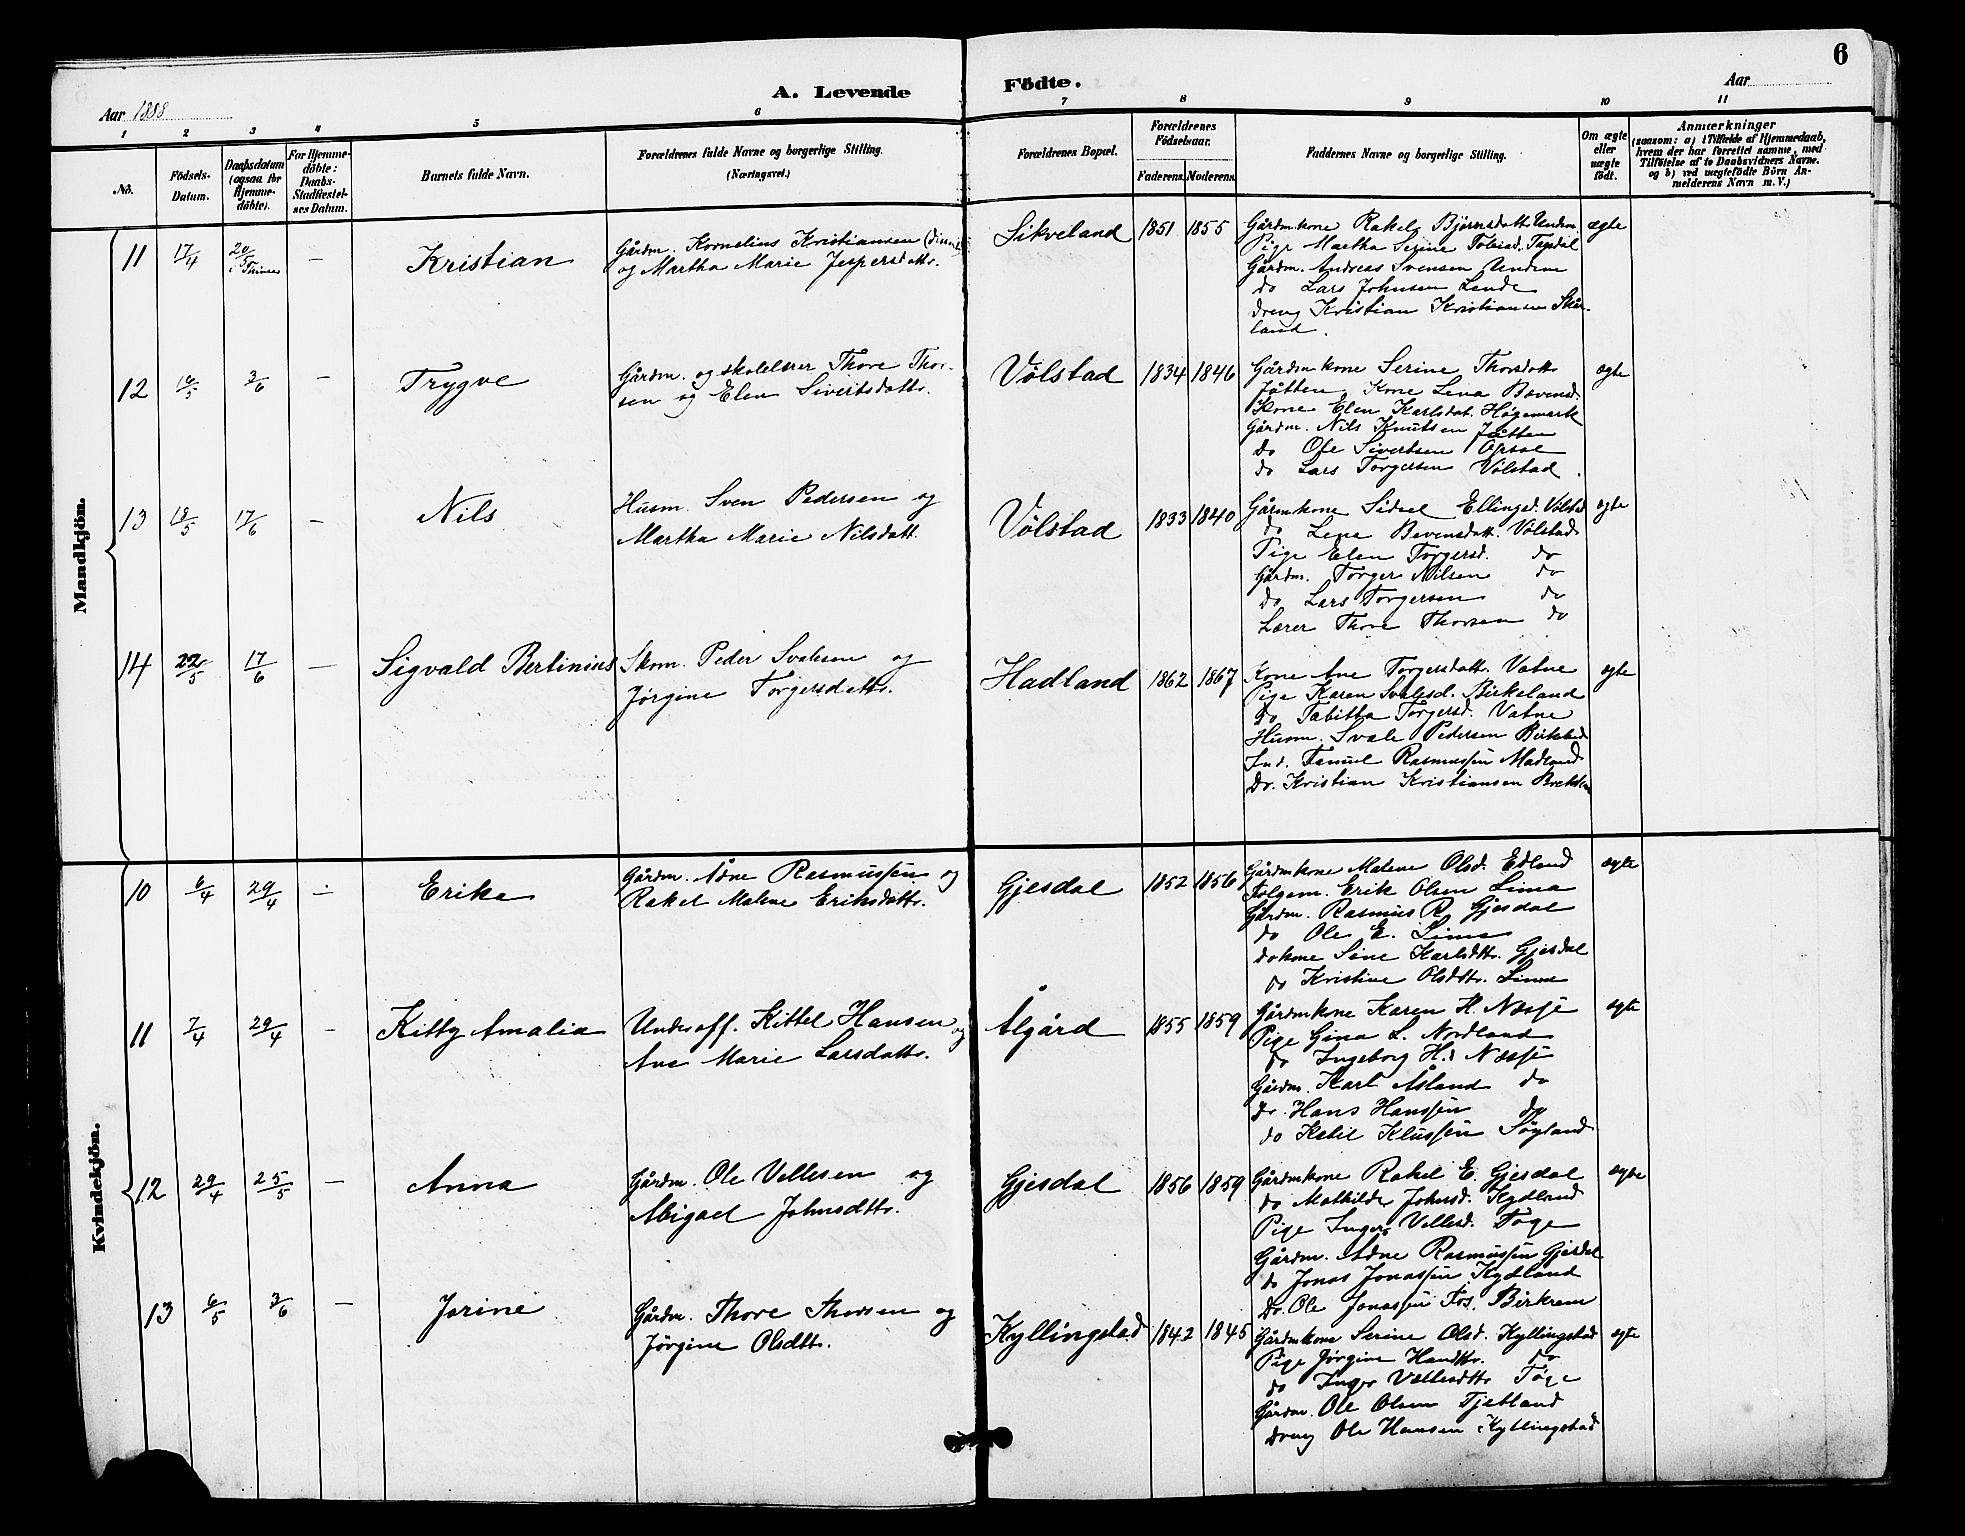 6
A. Levende Födte.
Aar 1888
Aar
1 2 3 4 5 6 7 8 9 10 11
No.
Födsels-Datum.
Daabsdatum (ogsaa for Hjemme-döbte).
For Hjemme-döbte: Daabs-Stadfæstel-ses Datum.
Barnets fulde Navn.
Forældrenes fulde Navne og borgerlige Stilling. (Næringsvei.)
Forældrenes Bopæl.
Forældrenes Födselsaar.
Faderens. Moderens.
Faddernes Navne og borgerlige Stilling.
Om ægte eller uægte födt.
Anmærkninger
(saasom: a) i Tilfælde af Hjemmedaab, hvem der har forrettet samme, med Tilföielse af to Daabsvidners Navne. og b) ved uægtefödte Börn An-melderens Navn m. V.)
Mandkjön.
11 17/4 20/5 i Thime — Kristian
Gårdm. Kornelius Kristiansen
og Martha Marie Jespersdattr.
Sikveland 1851 1855
Gårdmkone Rakel Bjørnsdatt Undem
Pige Martha Serine Tobiasd.
Gårdm. Andreas Svensen Undem
do Lars Johnsen Lende
Dreng Kristian Kristiansen Skår-
land.
ægte
12 16/5 3/6 — Trygve
Gårdm. og skolelærer Thore Thor-
sen og Elen Sivertsdattr.
Vølstad 1834 1846
Gårdmkone Serine Thorsdattr
Jåtten, Kone Lena Bevensd.
Kone Elen Karlsdat. Høgemark
Gårdm. Nils Knutsen Jåtten
do Ole Sivertsen Opsal
do Lars Torgersen Vølstad.
ægte
13 18/5 17/6 — Nils
Husm. Sven Pedersen og
Martha Marie Nilsdatt.
Vølstad 1833 1840
Gårmkone Sidsel Ellingsd. Vølstad
do Lena Bevensdatt. Vølstad
Pige Elen Torgersd. do
Gårdm. Torger Nilsen do
do Lars Torgersen do
Lærer Thore Thorsen do
ægte
14 22/5 17/6 — Sigvald Bertinius
Skom. Peder Svalesen og
Jørgine Torgersdattr.
Hadland 1862 1867
Kone Ane Torgersdatt. Vatne
Pige Karen Svalesd. Birkeland
do Tabitha Torgersd. Vatne
Husm. Svale Pedersen
Ind. Samuel Rasmussen Madland
Dr. Kristian Kristiansen
ægte
Kvindekjön.
10 6/4 29/4 — Erika
Gårdm. Ådne Rasmussen og
Rakel Malene Eriksdattr.
Gjesdal 1852 1856
Gårdmkone Malene Olsd. Edland
Folgem. Erik Olsen Lima
Gårdm. Rasmus R. Gjesdal
do Ole E. Lima
dokone Sine Karlsdtr. Gjesdal
do Kristine Olsdtr. Lima
ægte
11 7/4 29/4 — Kitty Amalia
Underoff. Kittel Hansen og
Ane Marie Larsdattr.
Ålgård 1855 1859
Gårdmkone Karen H. Næsse
Pige Gina L. Nordland
do Ingeborg H. Næsse
Gårdm. Karl Åsland do
Dr. Hans Hanssen do
do Ketil Klussen Søyland
ægte
12 29/4 25/5 — Anna
Gårdm. Ole Vellesen og
Abigael Johnsdttr.
Gjesdal 1856 1859
Gårdmkone Rakel E. Gjesdal
do Mathilde Johnsd. Kydland
Pige Inger Vellesd. Tøge
Gårdm. Ådne Rasmussen Gjesdal
do Jonas Jonassen Kydland
Dr. Ole Jonassen Fos. Birkrem
ægte
13 6/5 3/6 — Jorine
Gårdm. Thore Thorsen og
Jørgine Olsdttr.
Kyllingstad 1842 1845
Gårdmkone Serine Olsd. Kyllingstad
Pige Jørgine Hansdttr. do
do Inger Vellesdttr Tøge
Gårdm. Ole Olsen Tjetland
Dreng Ole Hansen Kyllingstad
ægte